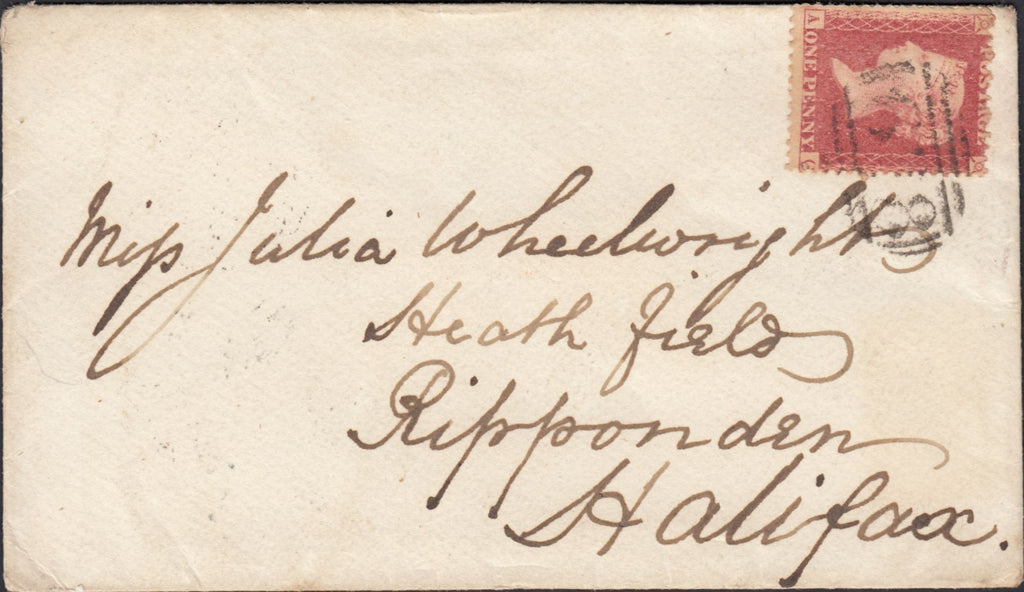 A ONE PENNY G
Miss Julia Wheelwright
Heath field
Ripponden
Halifax.